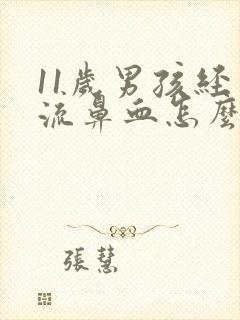 11歲男孩經
流鼻血怎麼
張慧